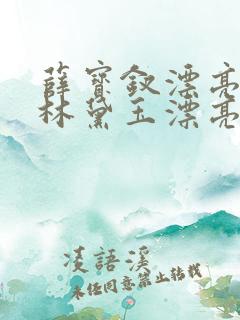 薛寶釵漂亮
林黛玉漂亮
凌語溪
未经同意禁止转载